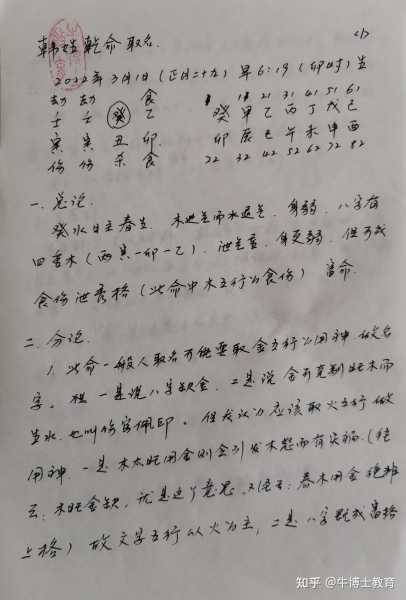 韩姓乾命取名.
(1)
2022年3月1日(正月二十九)早6:19(卯时)生
劫 劫 食 8 18 21 31 41 51 61
壬 壬 癸 乙 癸 甲 乙 丙 丁 戊 己
寅 寅 丑 卯 卯 辰 巳 午 未 申 酉
伤 伤 杀 食 22 32 42 52 62 72 82
一、总论
癸水日主春生,木进气而水退气,身弱,八字有
四重木(两寅一卯一乙),泄气重,身更弱,但可成
食伤泄秀格(此命中木五行为食伤)富命.
二、分论.
1. 此命一般人取名可能要取金五行为用神,故名
字, 一是说八字缺金,二是说金可克制旺木而
生水,也叫伤官佩印。但我认为应该取火五行做
用神,一是木太旺用金则会引发木怒而有灾祸.(经
云:木旺金缺,就是这个意思,又经云:春木用金绝非
上格)故文字五行以火为主,二是八字既成富格
知乎 @牛博士教育